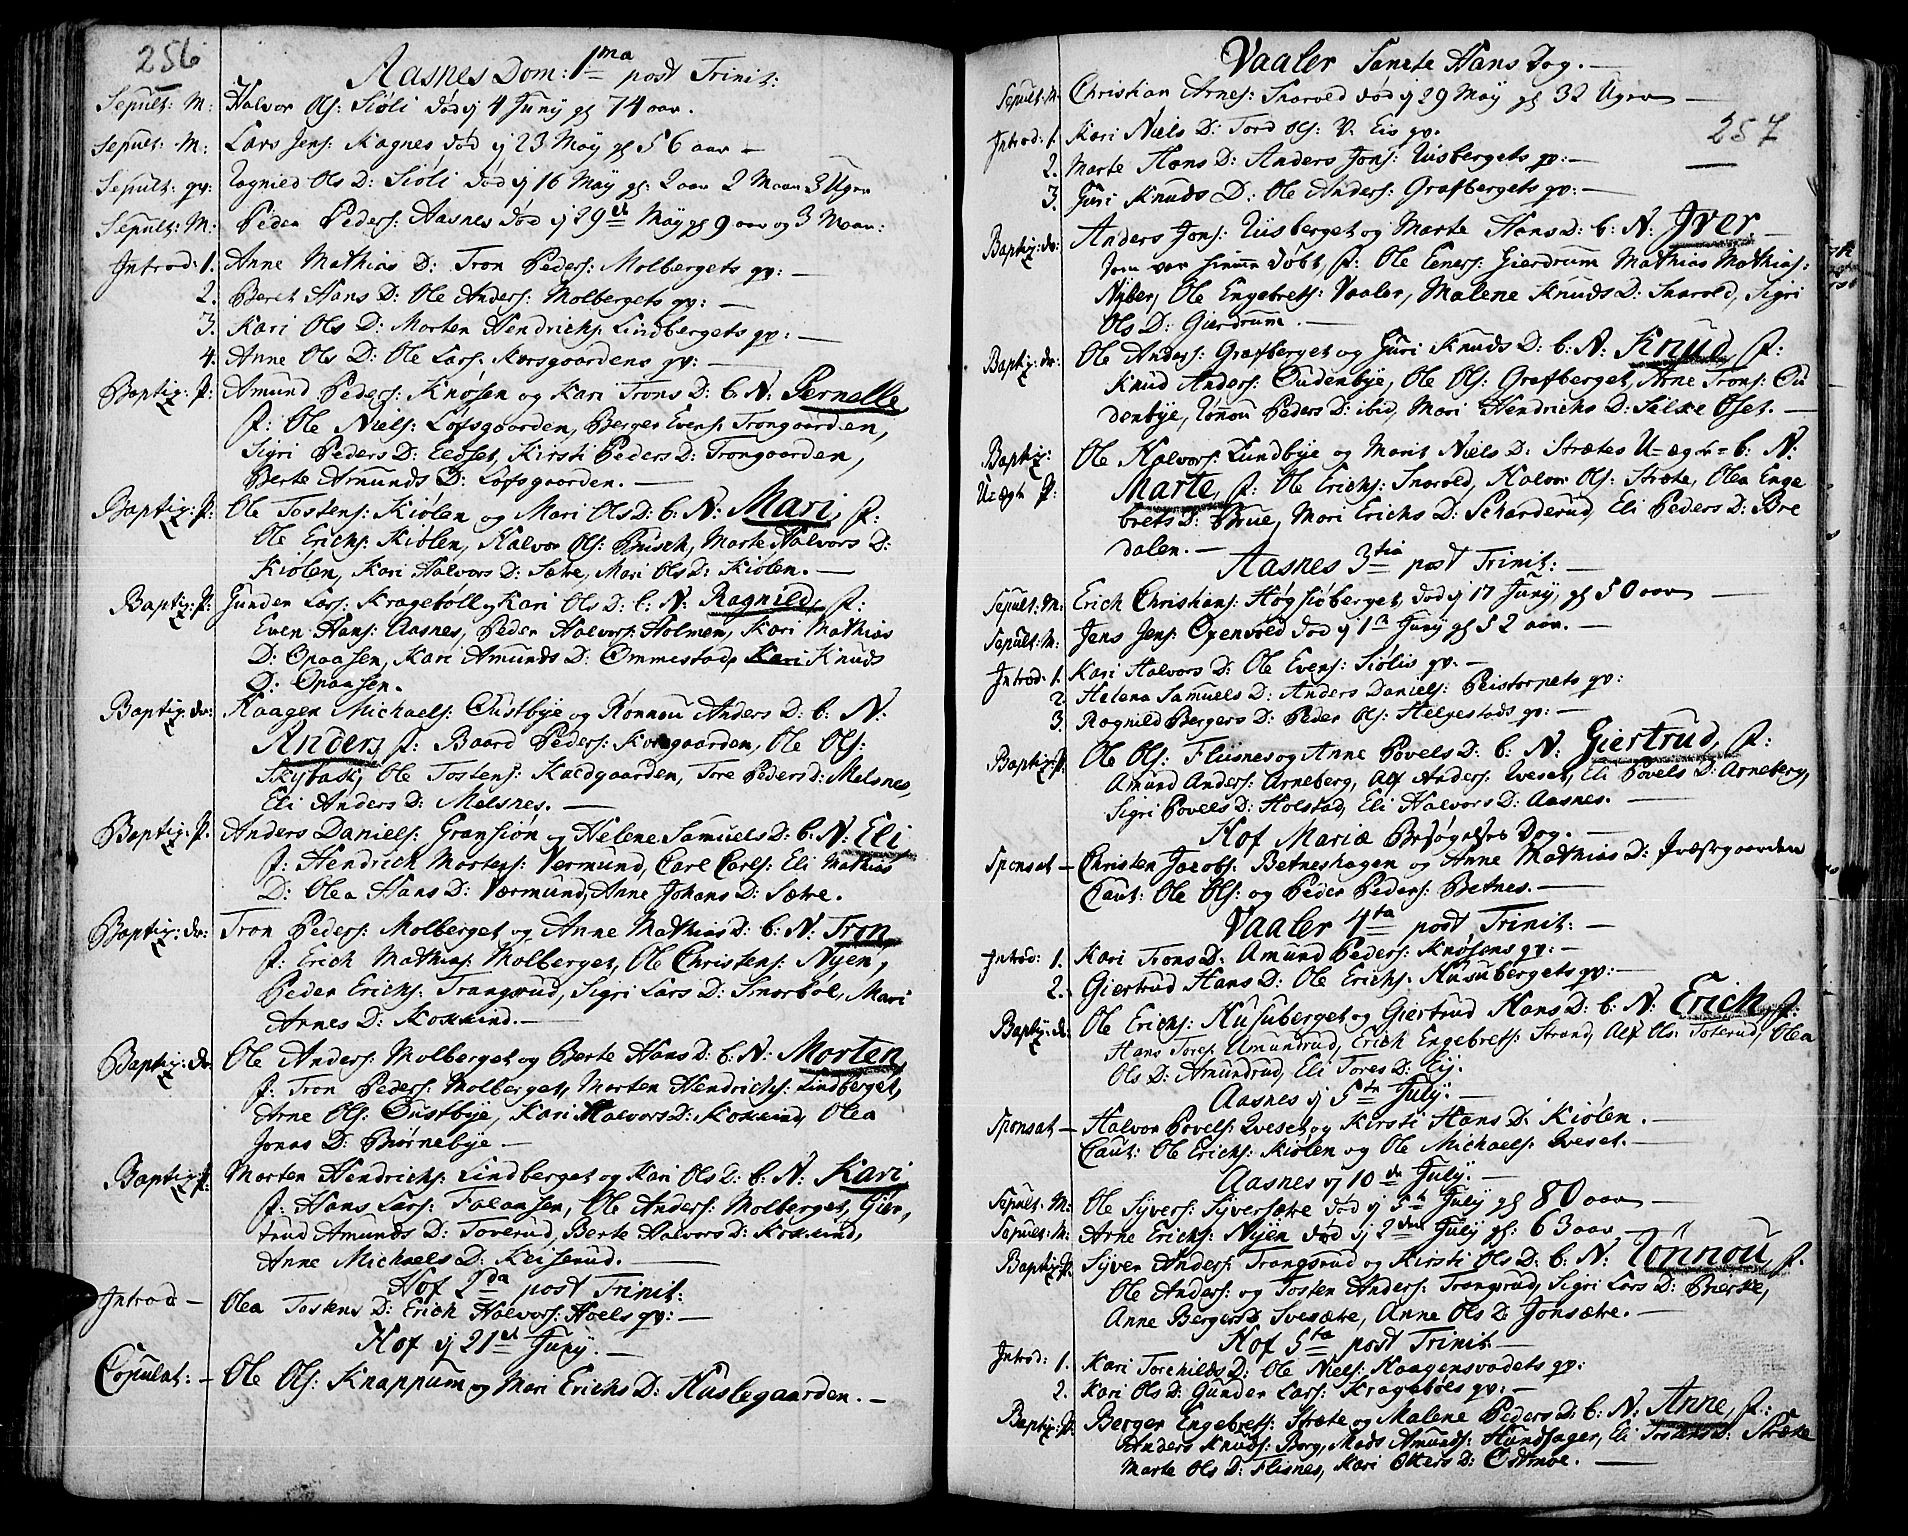 256
Aasnes Dom: 1ma post Trinit:
Sepult: M: Halvor Ols: Siöli död ij 4 Juny gl 74 aar.
Sepult: M: Lars Jens: Kagnes död ij 23 May gl 56 aar —
Sepult: qv: Ragnild Ols D: Siöli död ij 16 May gl: 2 aar 2 Maan 3 Ugr
Sepult: M: Peder Peders: Aasnes död ij 29de May gl 9 aar og 3 Maan:
Introd: 1. Anne Mathias D: Tron Peders: Molbergets qv: —
2. Berte Hans D: Ole Anders: Molbergets qv: —
3. Kari Ols D: Morten Hendrichs: Lindbergets qv: —
4. Anne Ols D: Ole Lars: Korsgaardens qv: —
Baptiz: P: Amund Peders: Knösen og Kari Trons D: b: N: Pernelle
f: Ole Niels: Löfsgaarden, Berger Evens: Trongaarden,
Sigri Peders D: Eedset, Kirsti Peders D: Trongaarden,
Berte Amunds D: Löfsgaarden. —
Baptiz: P: Ole Tostens: Kiölen og Mari Ols D: b: N: Mari, f:
Ole Erichs: Kiölen, Halvor Ols: Busch, Marte Halvors D:
Kiölen, Kari Halvors D: Sætre, Mari Ols D: Kiölen. —
Baptiz: P: Gunder Lars: Krageböll og Kari Ols D: b: N: Ragnild, f:
Even Hans: Aasnes, Peder Halvors: Holmen, Kari Mathias
D: Opaasen, Kari Amunds D: Ommestad, Kari Knuds
D: Opaasen.
Baptiz: dr: Haagen Michaels: Oustbye og Rönnou Anders D: b: N:
Anders, f: Baard Peders: Korsgaarden, Ole Ols:
Skybask, Ole Tostens: Kaedgaarden, Tore Peders D: Melsnes,
Eli Anders D: Melsnes. —
Baptiz: P: Anders Daniels: Gransiön og Helene Samuels D: b: N: Eli
f: Hendrich Mortens: Vermund, Carl Carls: Eli Mathias
D: Olea Hans D: Værmund, Anne Johans D: Sætre.
Baptiz: dr: Tron Peders: Molberget og Anne Mathias D: b: N: Tron
f: Erich Mathias: Molberget, Ole Christens: Nyen,
Peder Erichs: Trangsrud, Sigri Lars D: Snorböl, Mari
Arnes D: Kokkind. —
Baptiz: dr: Ole Anders: Molberget og Berte Hans D: b: N: Morten
f: Tron Peders: Molberget, Morten Hendrichs: Lindberget,
Arne Ols: Oustbye, Kari Halvors D: Kokkind, Olea
Jonas D: Biörnebye —
Baptiz: P: Morten Hendrichs: Lindberget og Kari Ols D: b: N: Kari
f: Hans Lars: Falaasen, Ole Anders: Molberget, Gier,
trud Amunds D: Toverud, Berte Halvors D: Kokkind,
Anne Michaels D: Keiserud. —
Hof 2da post Trinit:
Introd — Olea Tostens D: Erich Halvors: Hoels qv: —
Hof ij 21de Juny. —
Copulat: — Ole Ols: Knappum og Mari Erichs D: Huslegaarden. —
Vaaler Sancte Hans Dag. —
257
Sepult: M: Christian Arnes: Snarvold död ij 29 May gl 32 Uger —
Introd: 1. Kari Niels D: Tord Ols: V. Eis qv.
2. Marte Hans D: Anders Jons: Riisbergets qv: —
3. Guri Knuds D: Ole Anders: Grafbergets qv: —
Baptiz: dr: Anders Jons: Riisberget og Marte Hans D: b: N: Iver. —
som var hiemme döbt, f: Ole Eeners: Gierdrum Mathias Mathias:
Nyber, Ole Engebrets: Vaaler, Malene Knuds D: Snarvold, Sigri
Ols D: Gierdrum. —
Baptiz: dr: Ole Anders: Grafberget og Guri Knuds D: b: N: Knud, f:
Knud Anders: Oudenbye, Ole Ols: Grafberget, Arne Trons: Ou
denbye, Rönou Peders D: ibid, Mari Hendrichs D: Silke Oset. —
Baptiz: Ole Halvors: Lundbye og Marit Niels D: Strætes U=ægt= b: N:
Uægt P: Marte, f: Ole Erichs: Snarvold, Halvor Ols: Stræte, Olea Enge
brets D: Brue, Mari Erichs D: Scharderud, Eli Peders D: Bre
dalen. —
Aasnes 3tia post Trinit: —
Sepult: M: Erich Christians: Högsiöberget död ij 17 Juny, gl 50 aar —
Sepult: M: Jens Jens: Oxenvold död ij 13 Juny gl 52 aar. —
Introd: 1. Kari Halvors D: Ole Evens: Siölis qv. —
2 Helena Samuels D: Anders Daniels: Peistorpets qv:
3. Ragnild Bergers D: Peder Ols: Helgestads qv: —
Baptiz: P: Ole Ols: Fliisnes og Anne Povels D: b: N: Giertrud, f:
Amund Anders: Arneberg, Alf Anders: Qveset, Eli Povels D: Arneberg,
Sigri Povels D: Holstad, Eli Halvors D: Aasnes. —
Hof Mariæ Besögelses Dag. —
Sponsat — Christen Jacobs: Betneshagen og Anne Mathias D: Præstegaarden
Caut: Ole Ols: og Peder Peders: Betnes. —
Vaaler 4ta post Trinit: —
Introd: 1. Kari Trons D: Amund Peders: Knösens qv: —
2. Giertrud Hans D: Ole Erichs: Husubergets qv: —
Baptiz: dr: Ole Erichs: Husuberget og Giertrud Hans D: b: N: Erich, f:
Hans Tores: Amundrud, Erich Engebrets: Strand, Alf Ols: Toterud, Olea
Ols D: Amundrud, Eli Tores D: Eij.
Aasnes ij 5te July. —
Sponsat — Halvor Povels: Qveset og Kirsti Hans D: Kiölen. —
Caut: Ole Erichs: Kiölen og Ole Michaels: Qveset. —
Aasnes ij 10de July. —
Sepult: M: Ole Syvers: Syversætre död ij 5te July gl 80 aar —
Sepult: M: Arne Erichs: Nyen död ij 2den July gl: 63 aar —
Baptiz: P: Syver Anders: Trangsrud og Kirsti Ols D: b: N: Rönnou, f.
Ole Anders: og Tosten Anders: Trangsrud, Sigri Lars D: Berske,
Anne Bergers D: Svesætre, Anne Ols D: Jonsætre. —
Hof 5ta post Trinit —
Introd: 1. Kari Torchilds D: Ole Niels: Haagensvadets qv:
2. Kari Ols D: Gunder Lars: Kragebôls qv: —
Baptiz: P: Berger Engebrets: Stræte og Malene Peders D: b: N: Anne, f:
Anders Knuds: Borg, Mads Amunds: Hundsager, Eli Tostens D: Stræte
Marte Ols D: Flisnes, Kari Otters D: Östmoe. —